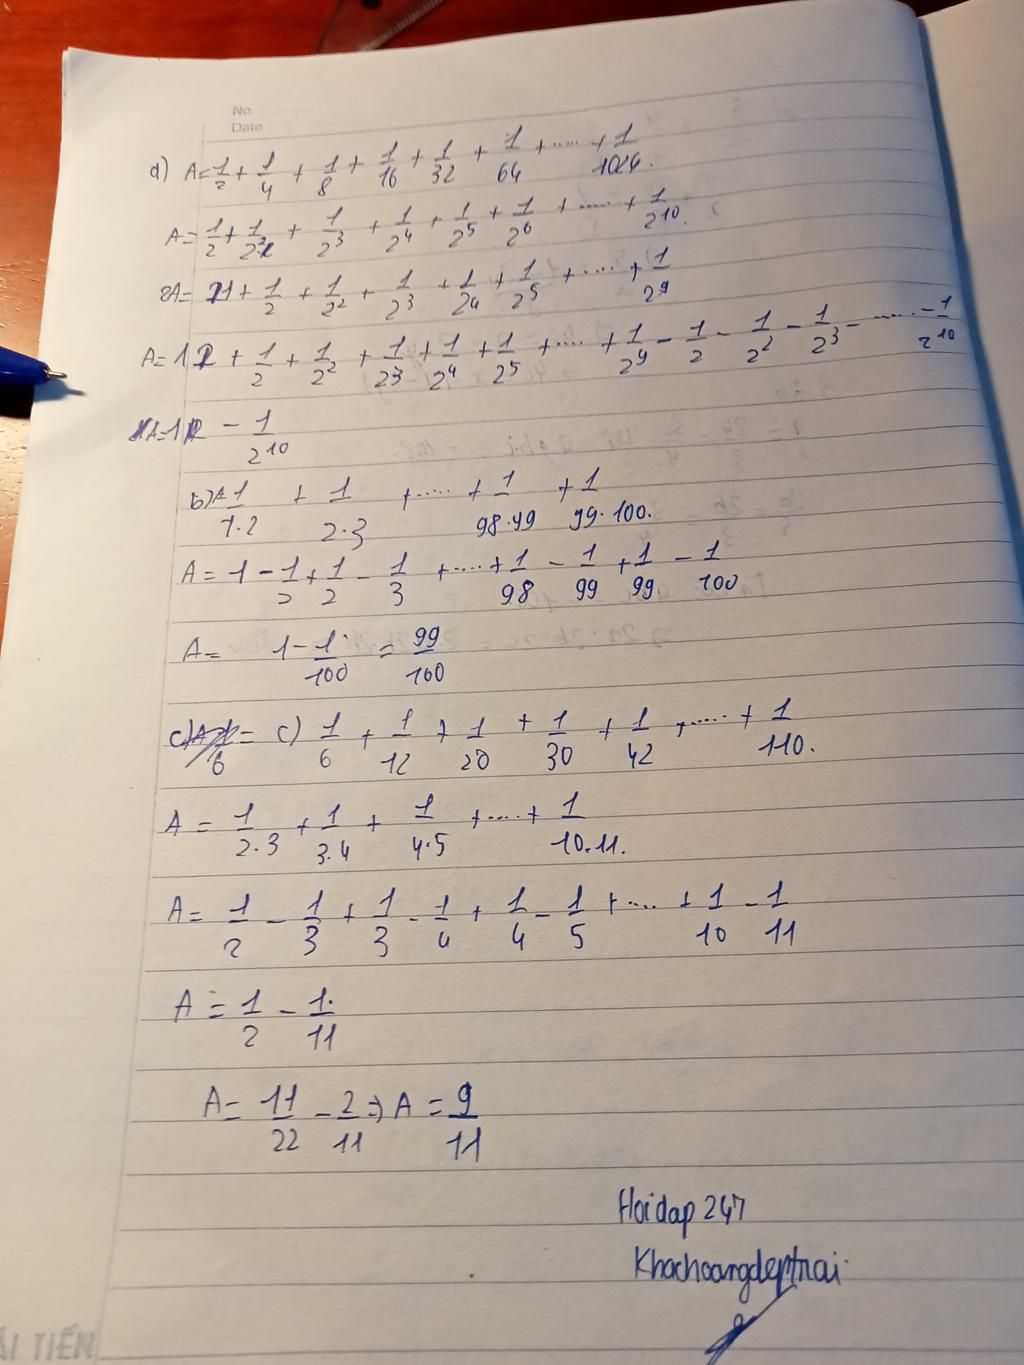 No.
Date
a) A = 1/2 + 1/4 + 1/8 + 1/16 + 1/32 + 1/64 + ..... + 1/1024.
A = 1/2 + 1/2² + 1/2³ + 1/2⁴ + 1/2⁵ + 1/2⁶ + ..... + 1/2¹⁰.
2A = 1 + 1/2 + 1/2² + 1/2³ + 1/2⁴ + 1/2⁵ + ..... + 1/2⁹
A = 1 + 1/2 + 1/2² + 1/2³ + 1/2⁴ + 1/2⁵ + ..... + 1/2⁹ - 1/2 - 1/2² - 1/2³ - ..... - 1/2¹⁰
A = 1 - 1/2¹⁰
b) A = 1/1.2 + 1/2.3 + ..... + 1/98.99 + 1/99.100.
A = 1 - 1/2 + 1/2 - 1/3 + ..... + 1/98 - 1/99 + 1/99 - 1/100
A = 1 - 1/100 = 99/100
c) 1/6 + 1/12 + 1/20 + 1/30 + 1/42 + ..... + 1/110.
A = 1/2.3 + 1/3.4 + 1/4.5 + ..... + 1/10.11.
A = 1/2 - 1/3 + 1/3 - 1/4 + 1/4 - 1/5 + .... + 1/10 - 1/11
A = 1/2 - 1/11
A = 11/22 - 2/11 => A = 9/11
Hoidap 247
Khachoangdeptrai
ẢI TIẾN